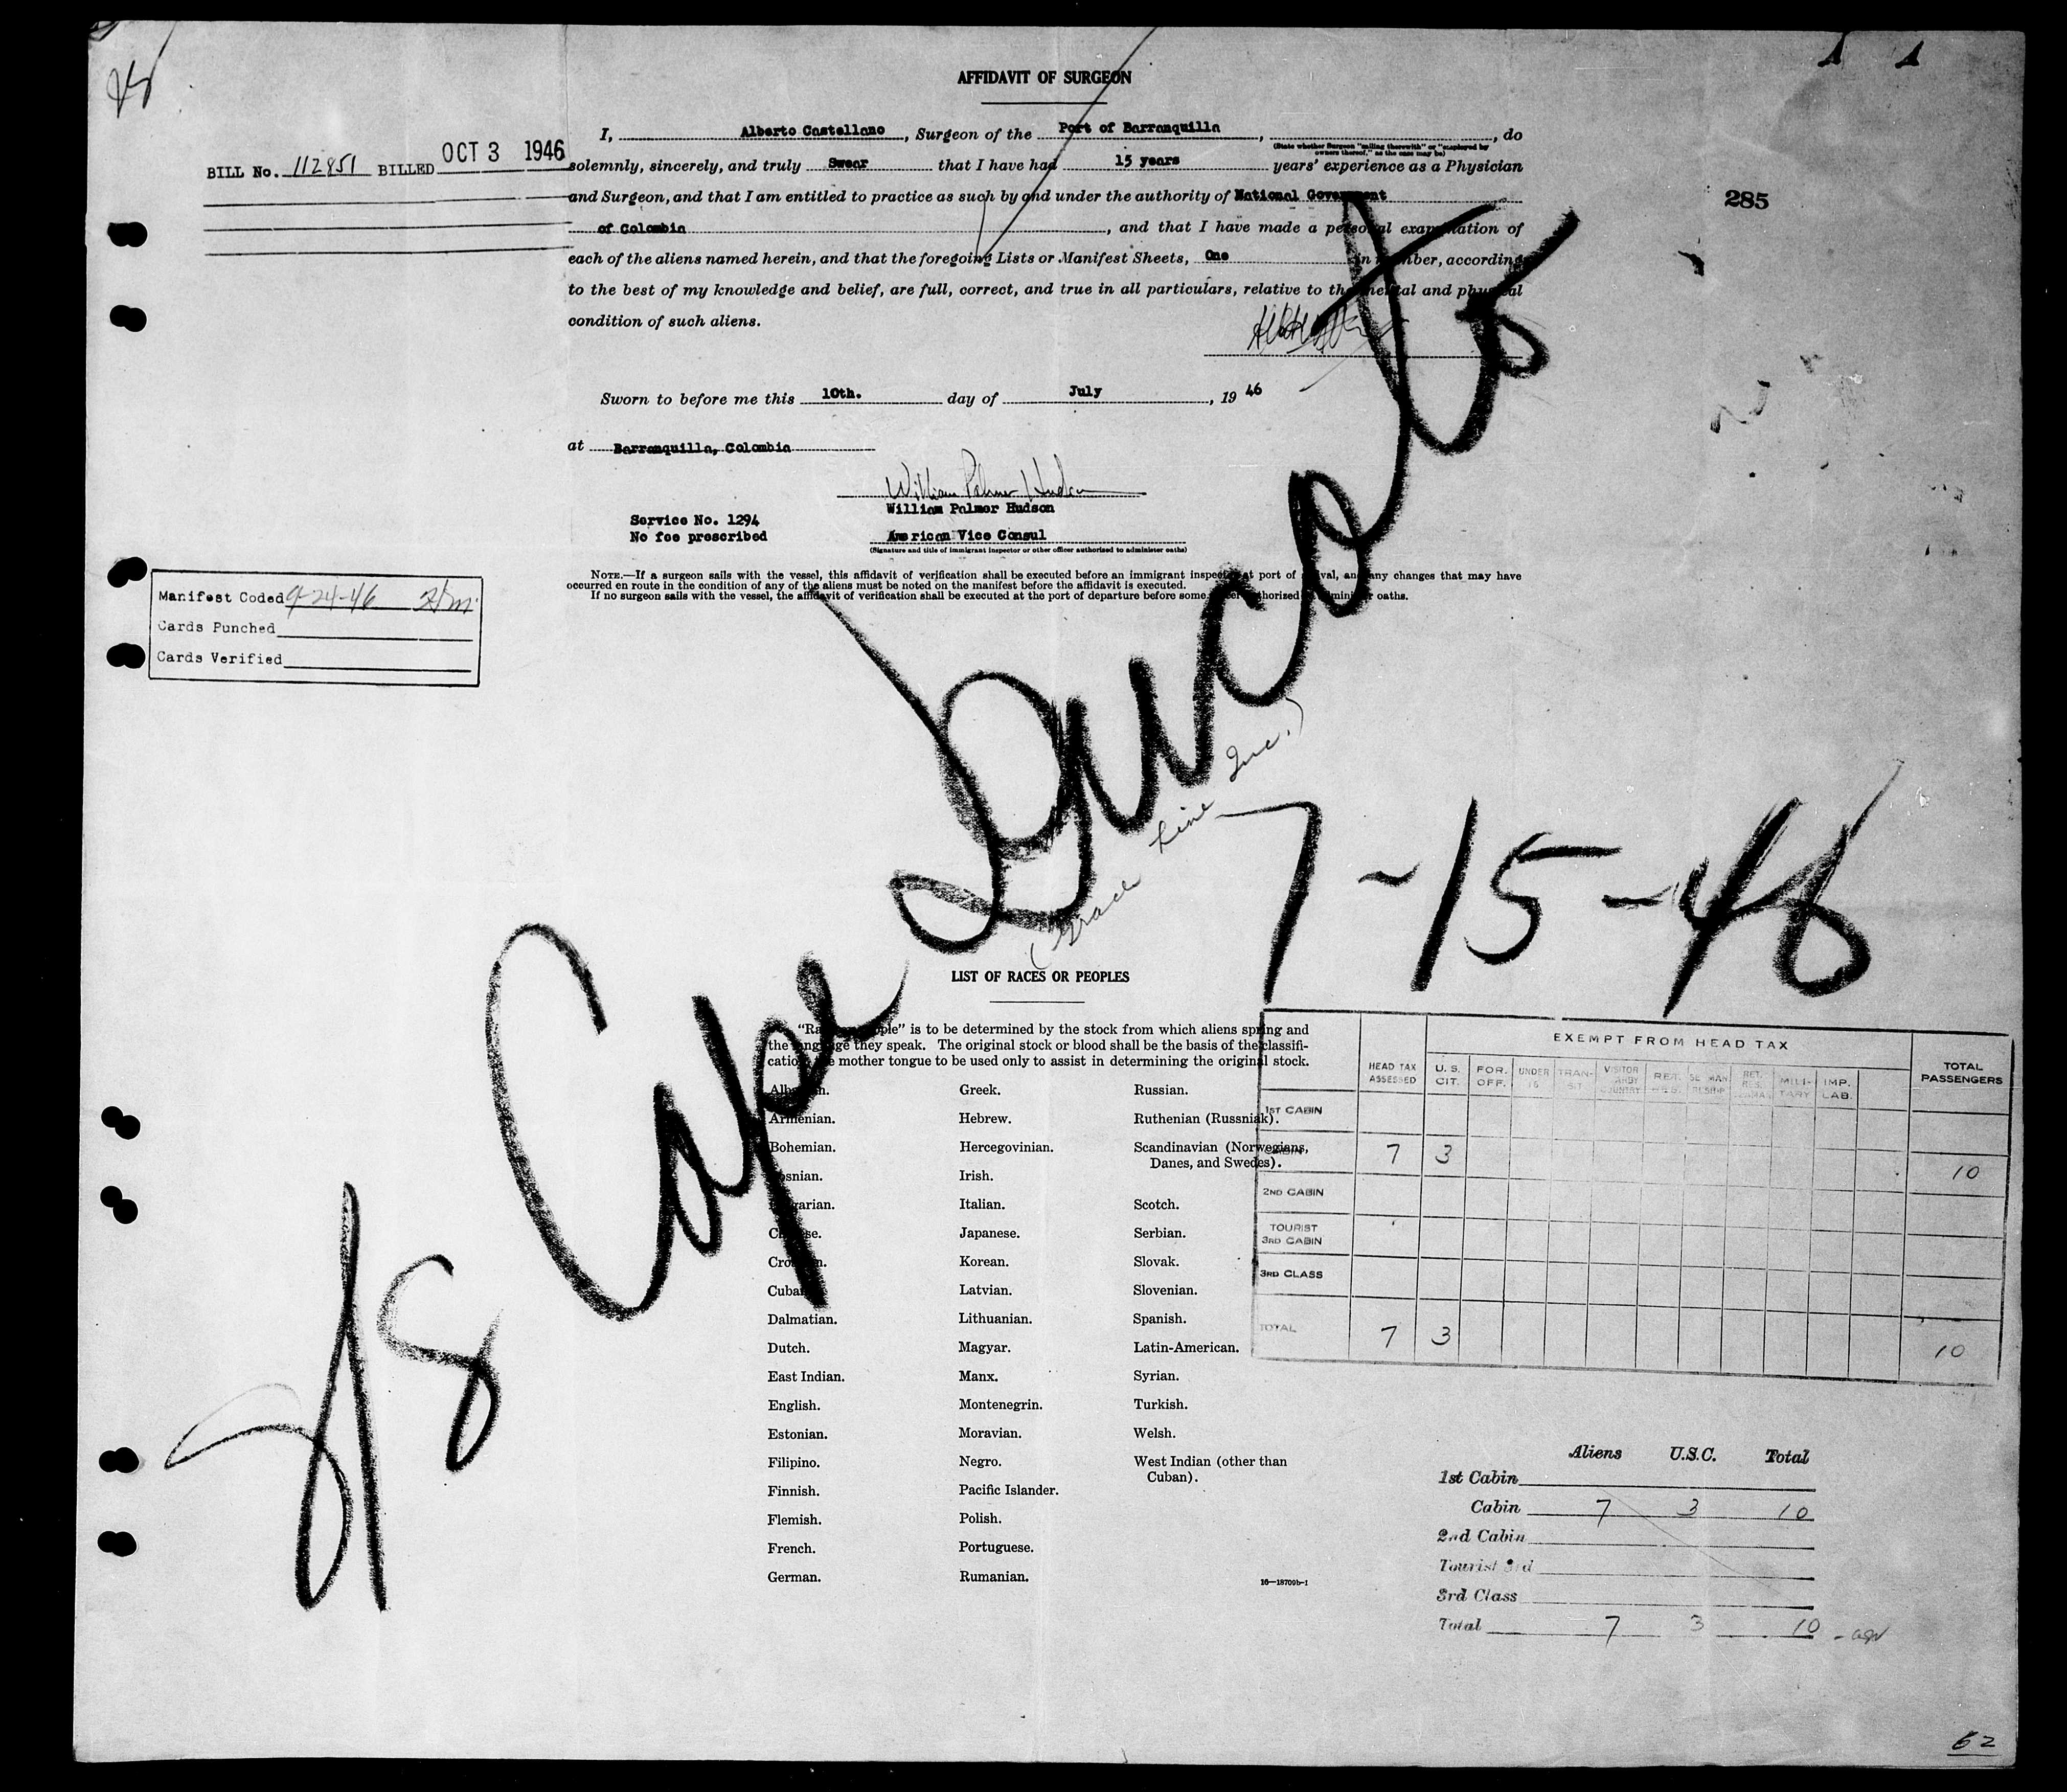 AFFIDAVIT OF SURGEON
I, Alberto Castellano, Surgeon of the Port of Barranquilla, , do
(State whether Surgeon "sailing therewith" or "employed by owners thereof," as the case may be)
BILL No. 112851 BILLED OCT 3 1946
solemnly, sincerely, and truly Swear that I have had 15 years years' experience as a Physician
and Surgeon, and that I am entitled to practice as such by and under the authority of National Government
285
of Colombia, and that I have made a personal examination of
each of the aliens named herein, and that the foregoing Lists or Manifest Sheets, One in number, according
to the best of my knowledge and belief, are full, correct, and true in all particulars, relative to the mental and physical
condition of such aliens.
Sworn to before me this 10th. day of July, 1946
at Barranquilla, Colombia
William Palmer Hudson
William Palmer Hudson
Service No. 1294
No fee prescribed
American Vice Consul
(Signature and title of immigrant inspector or other officer authorized to administer oaths)
NOTE.—If a surgeon sails with the vessel, this affidavit of verification shall be executed before an immigrant inspector at port of arrival, and any changes that may have
occurred en route in the condition of any of the aliens must be noted on the manifest before the affidavit is executed.
If no surgeon sails with the vessel, the affidavit of verification shall be executed at the port of departure before some officer authorized to administer oaths.
Manifest Coded 9-24-46
Cards Punched
Cards Verified
S/S Cape Ducato
(Grace Line Inc.)
7-15-46
LIST OF RACES OR PEOPLES
"Race or people" is to be determined by the stock from which aliens spring and
the language they speak. The original stock or blood shall be the basis of the classifi-
cation, the mother tongue to be used only to assist in determining the original stock.
Albanian.
Armenian.
Bohemian.
Bosnian.
Bulgarian.
Chinese.
Croatian.
Cuban.
Dalmatian.
Dutch.
East Indian.
English.
Estonian.
Filipino.
Finnish.
Flemish.
French.
German.
Greek.
Hebrew.
Hercegovinian.
Irish.
Italian.
Japanese.
Korean.
Latvian.
Lithuanian.
Magyar.
Manx.
Montenegrin.
Moravian.
Negro.
Pacific Islander.
Polish.
Portuguese.
Rumanian.
Russian.
Ruthenian (Russniak).
Scandinavian (Norwegians,
Danes, and Swedes).
Scotch.
Serbian.
Slovak.
Slovenian.
Spanish.
Latin-American.
Syrian.
Turkish.
Welsh.
West Indian (other than
Cuban).
16—18709b-1
EXEMPT FROM HEAD TAX
HEAD TAX ASSESSED U.S. CIT. FOR. OFF. UNDER 16 TRAN-SIT VISITOR RET. MILI-TARY IMP. LAB. TOTAL PASSENGERS
1ST CABIN
CABIN 7 3 10
2ND CABIN
TOURIST
3RD CABIN
3RD CLASS
TOTAL 7 3 10
Aliens U.S.C. Total
1st Cabin
Cabin 7 3 10
2nd Cabin
Tourist 3rd
3rd Class
Total 7 3 10
62